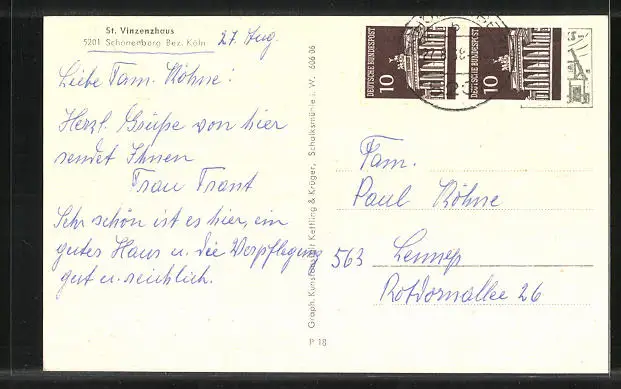 St. Vinzenzhaus
5201 Schönenberg Bez. Köln
27. Aug.
Liebe Fam. Köhne!
Herzl. Grüße von hier
sendet Ihnen
Frau Trant
Sehr schön ist es hier, ein
gutes Haus u. die Verpflegung
gut u. reichlich.
Graph. Kunstanstalt Kettling & Krüger, Schalksmühle i. W. 606 06
P 18
DEUTSCHE BUNDESPOST
10
DEUTSCHE BUNDESPOST
10
Fam.
Paul Köhne
563 Lennep
Rotdornallee 26